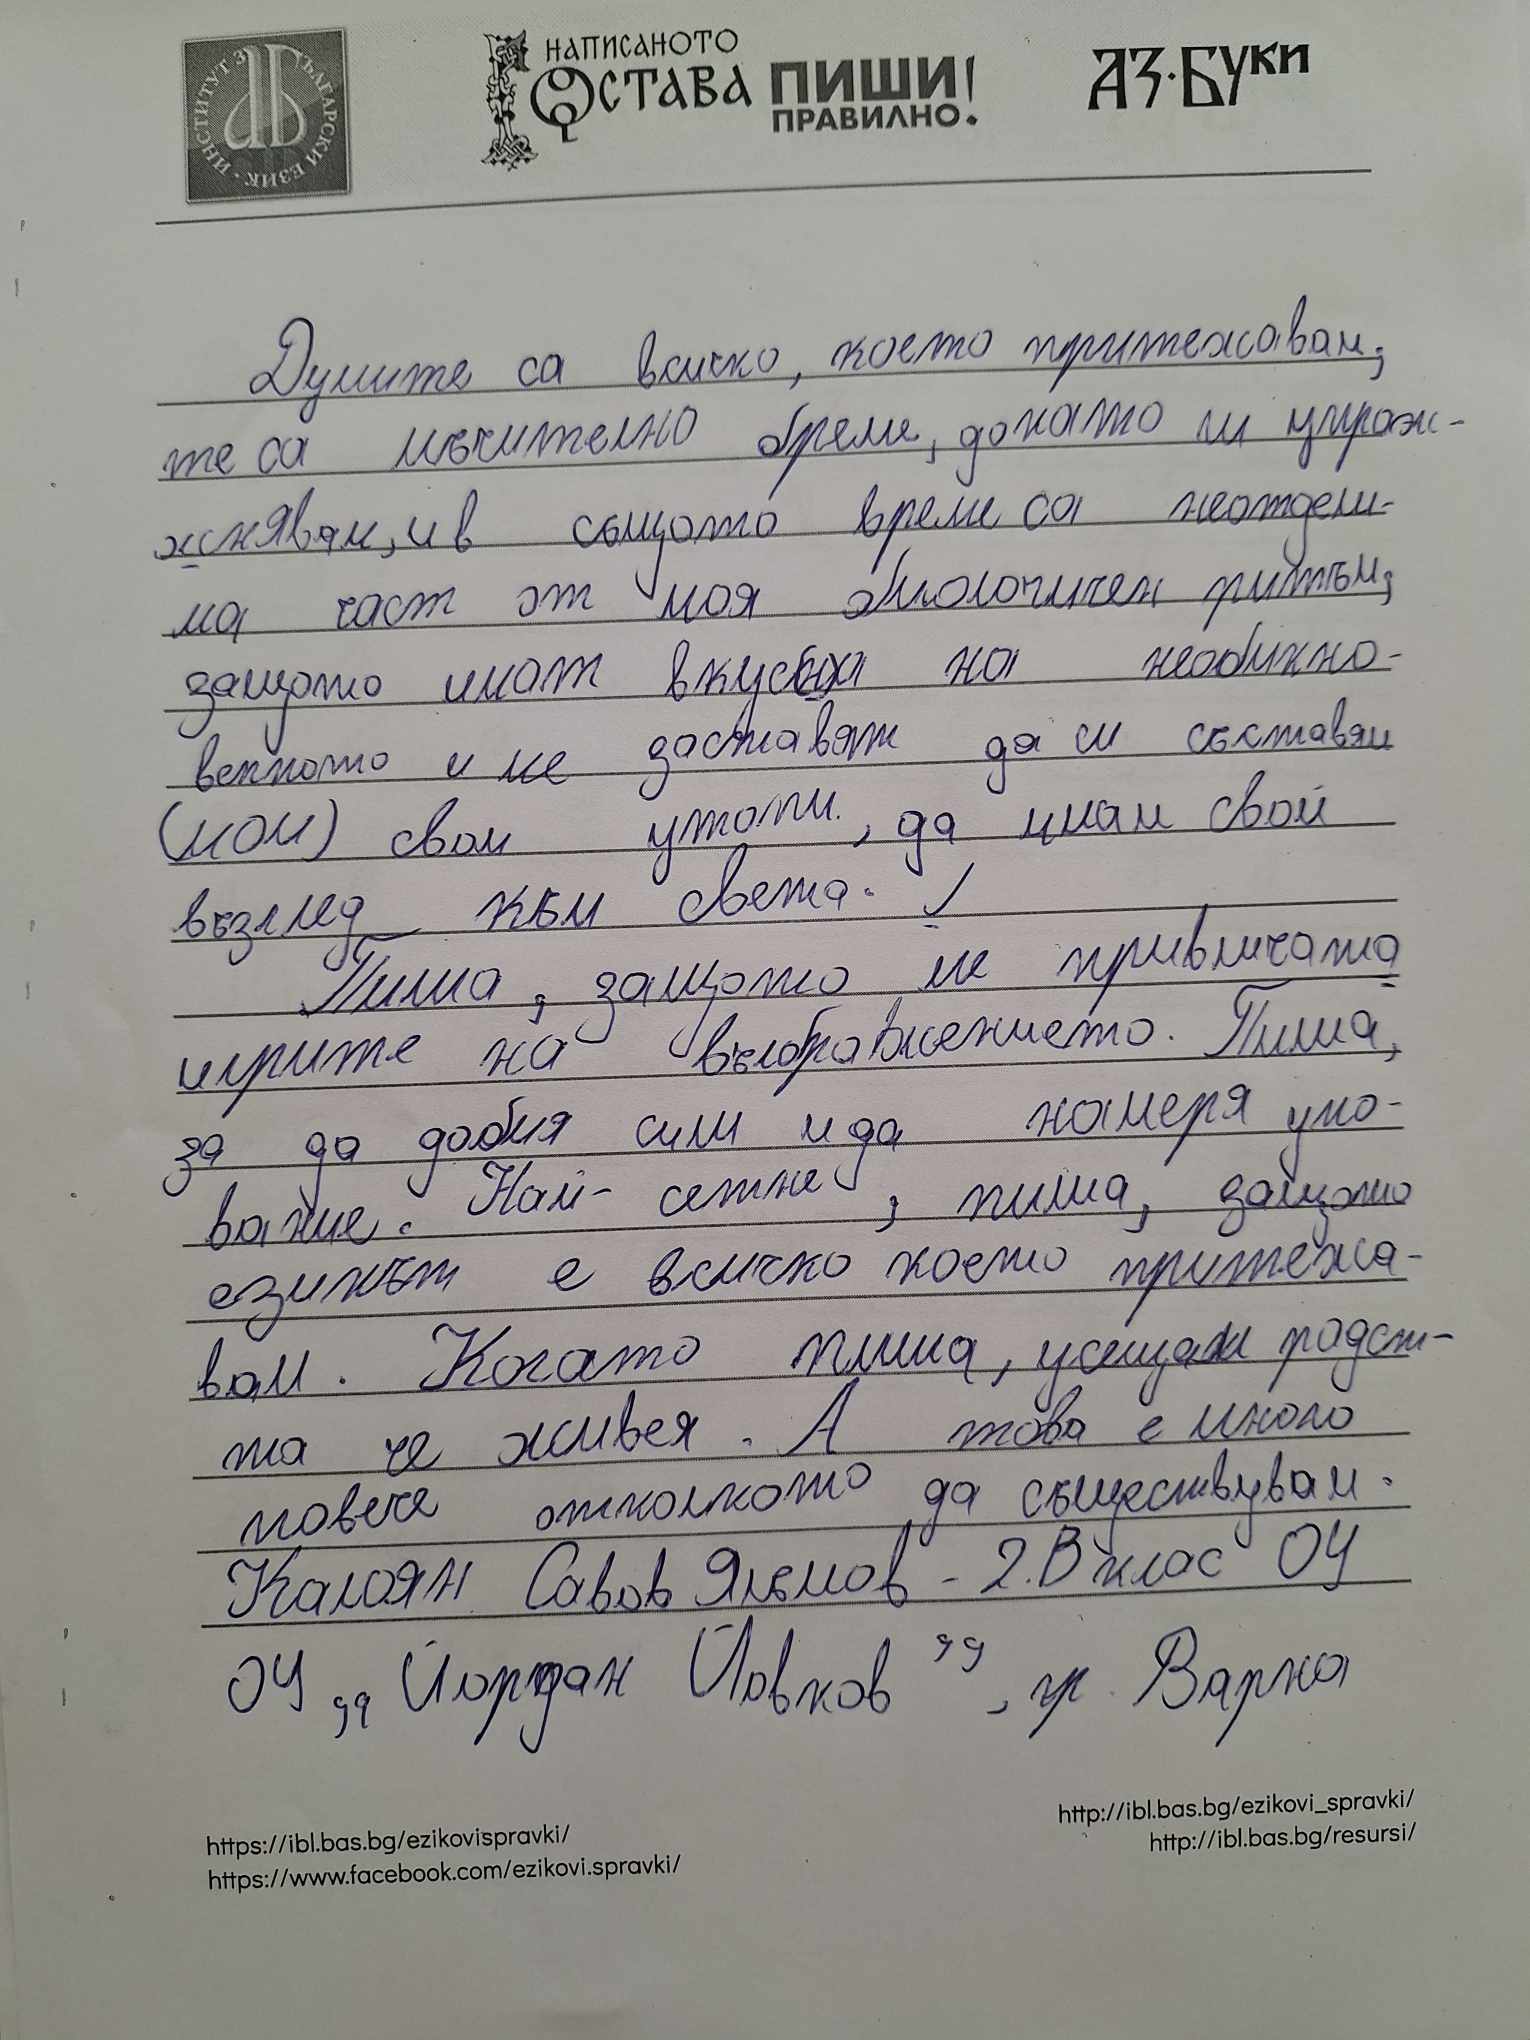 ИНСТИТУТ ЗА БЪЛГАРСКИ ЕЗИК
НАПИСАНОТО
ОСТАВА ПИШИ!
ПРАВИЛНО.
АЗ·БУКИ
Думите са всичко, което притежавам;
те са мъчително бреме, докато ги упраж-
жнявам, и в същото време са неотдели-
ма част от моя биологичен ритъм;
защото имат вкуса на необикно-
веното и ме заставят да си съставям
(мои) свои утопии, да имам свой
възглед към света.
Пиша, защото ме привличата
игрите на въображението. Пиша,
за да добия сили и да намеря упо-
вание. Най-сетне, пиша, защото
езикът е всичко което притежа-
вам. Когато пиша, усещам радост-
та че живея. А това е много
повече отколкото да съществувам.
Калоян Савов Ялъмов - 2.В клас ОУ
ОУ „Йордан Йовков", гр. Варна
https://ibl.bas.bg/ezikovispravki/
https://www.facebook.com/ezikovi.spravki/
http://ibl.bas.bg/ezikovi_spravki/
http://ibl.bas.bg/resursi/